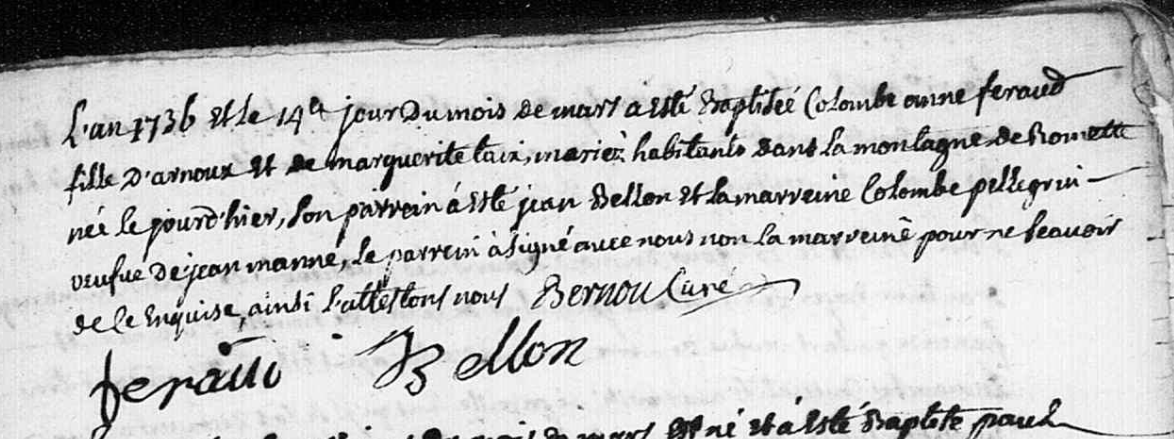 L'an 1736 et le 14e jour du mois de mars a esté Baptisée Colombe anne feraud
fille D'arnoux et de marguerite taix, mariez habitants dans la montagne de Romette
née le jourd'hier, son parrein à esté jean Bellon et la marreine Colombe pellegrin
veufve De jean manne, le parrein à signé avec nous non la marreine pour ne sçavoir
de ce Enquise, ainsi l'attestons nous Bernou Curé
feraud Bellon
mars est né et à esté Baptisé